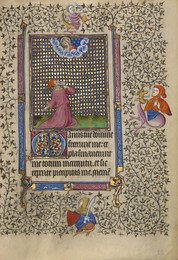 Manus tue domine
fecerunt me et
plasmauerunt
me totum in circuitu et sic
repente precipitas me.